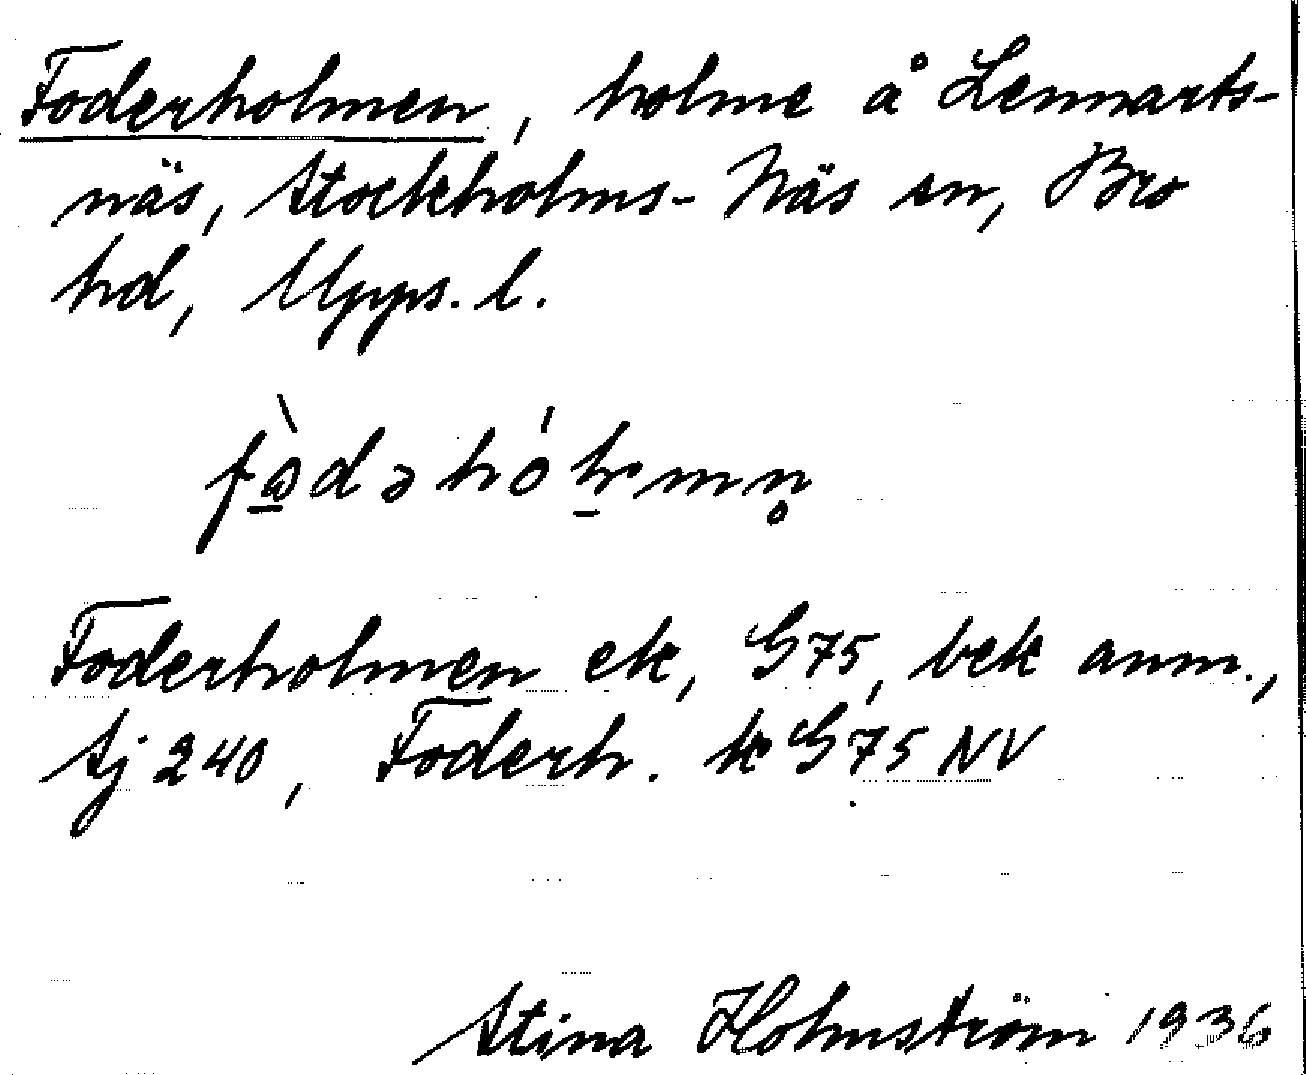 Foderholmen, holme å Lennarts-
näs, Stockholms-Näs sn, Bro
hd, Upps. l.
Foderholmen ek, G75, bek anm.,
tj 240, Foderh. k G75 NV
Stina Holmström 1936